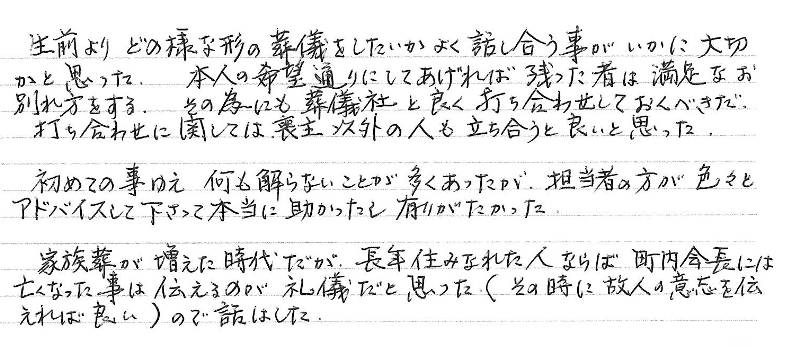 生前より どの様な形の葬儀をしたいかよく話し合う事がいかに大切
かと思った. 本人の希望通りにしてあげれば残った者は満足なお
別れ方をする. その為にも葬儀社と良く打ち合わせしておくべきだ.
打ち合わせに関しては喪主以外の人も立ち合うと良いと思った.
初めての事ゆえ 何も解らないことが多くあったが. 担当者の方が色々と
アドバイスして下さって本当に助かったし有りがたかった.
家族葬が増えた時代だが. 長年住みなれた人ならば町内会長には
亡くなった事は伝えるのが礼儀だと思った(その時に故人の意志を伝
えれば良い)ので話はした.